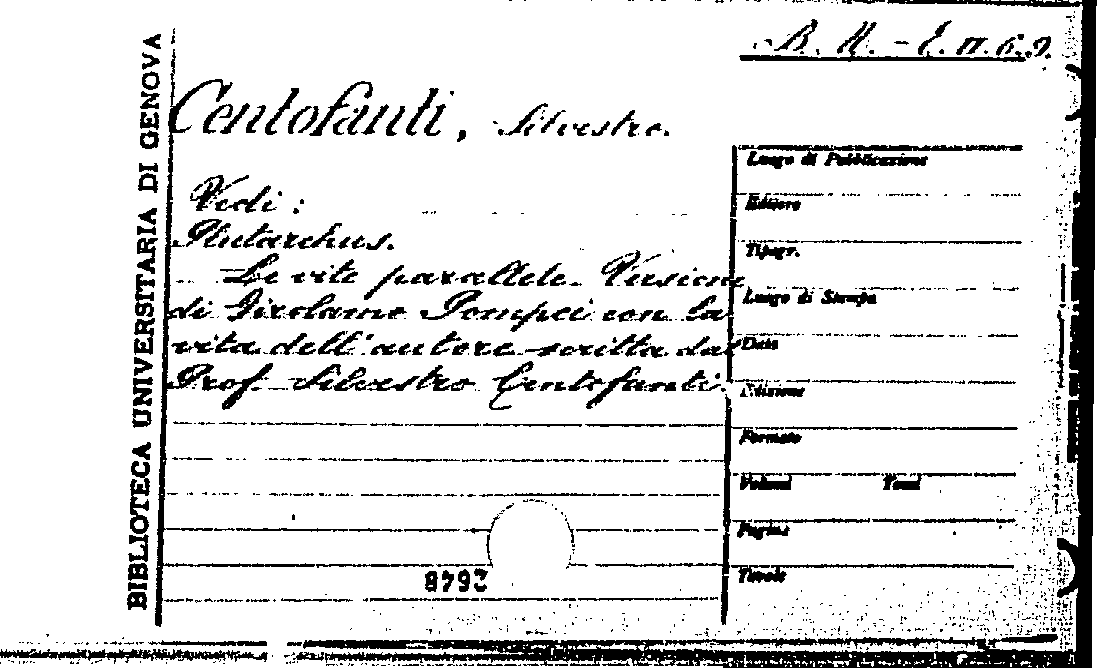 B. N. - E. II. 6. 9.
BIBLIOTECA UNIVERSITARIA DI GENOVA
Centofanti, Silvestro.
Vedi:
Plutarchus.
Le vite parallele. Versione
di Girolamo Pompei con la
vita dell'autore scritta dal
Prof. Silvestro Centofanti.
Luogo di Pubblicazione
Editore
Tipogr.
Luogo di Stampa
Data
Edizione
Formato
Volumi Tomi
Pagine
Tavole
2648